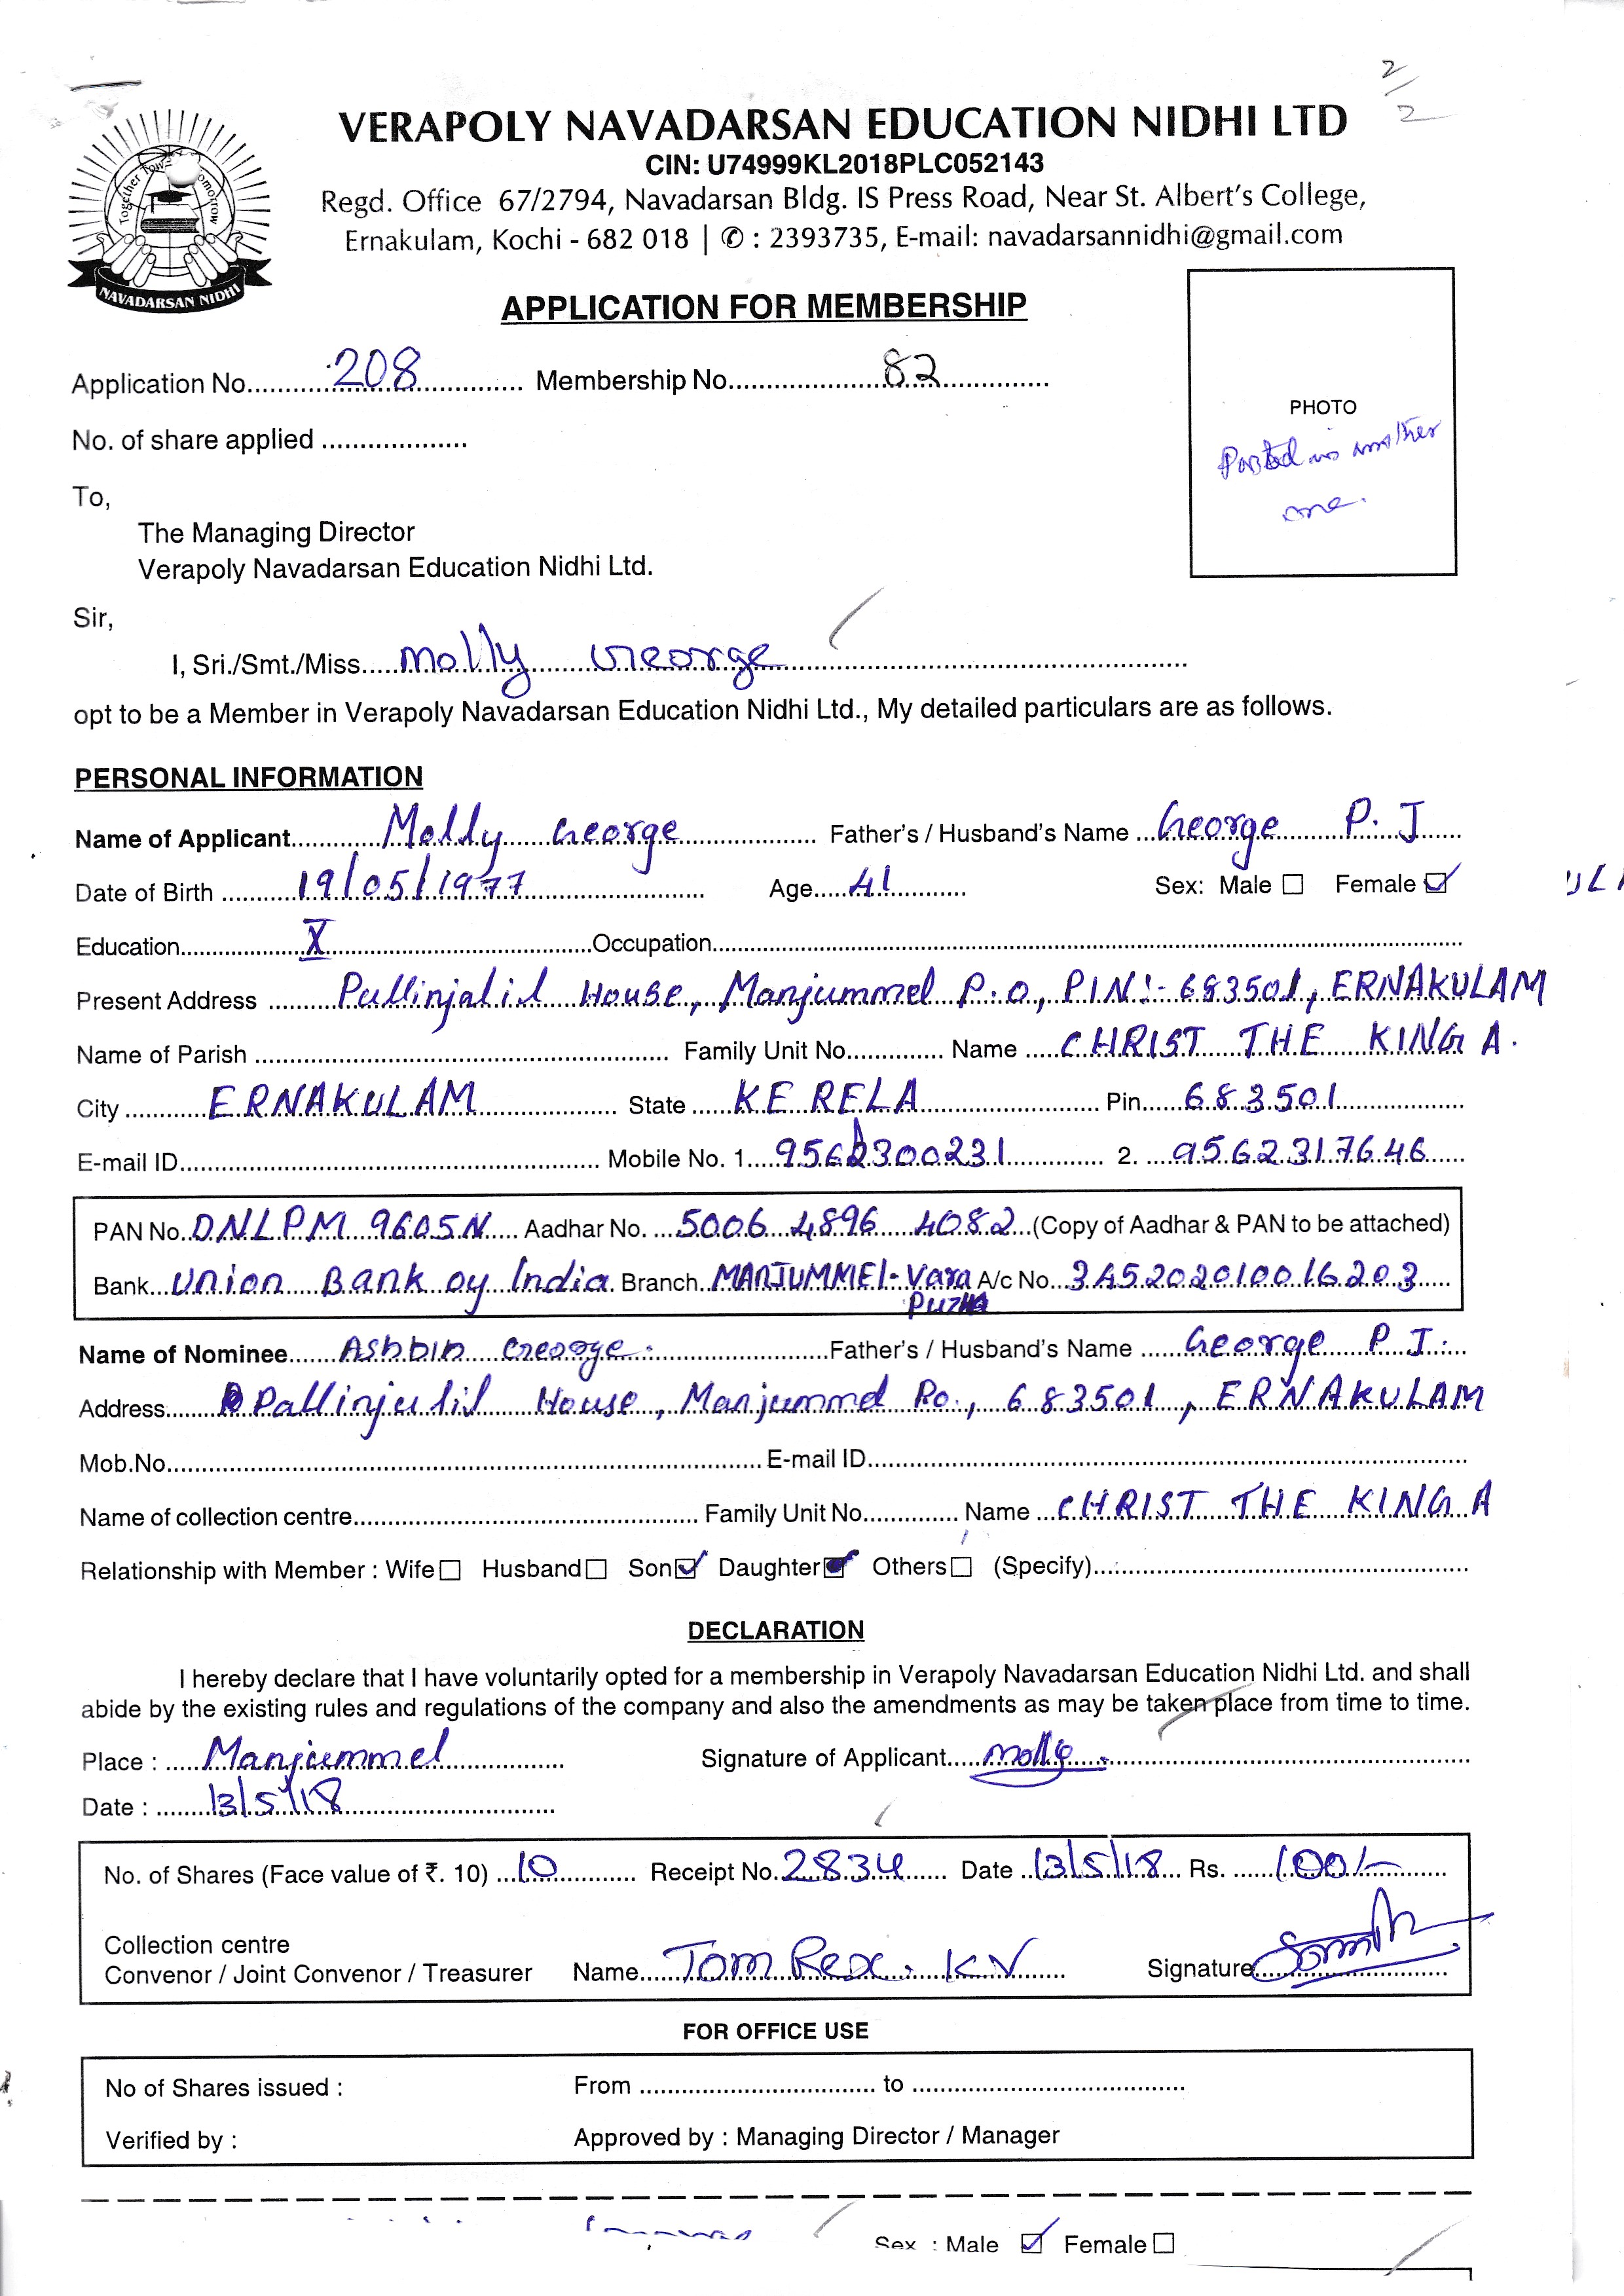 2/2
VERAPOLY NAVADARSAN EDUCATION NIDHI LTD
CIN: U74999KL2018PLC052143
Regd. Office 67/2794, Navadarsan Bldg. IS Press Road, Near St. Albert's College,
Ernakulam, Kochi - 682 018 | ✆ : 2393735, E-mail: navadarsannidhi@gmail.com
NAVADARSAN NIDHI
APPLICATION FOR MEMBERSHIP
Application No. 208 Membership No. 82
PHOTO
one.
No. of share applied
To,
The Managing Director
Verapoly Navadarsan Education Nidhi Ltd.
Sir,
I, Sri./Smt./Miss. Molly George
opt to be a Member in Verapoly Navadarsan Education Nidhi Ltd., My detailed particulars are as follows.
PERSONAL INFORMATION
Name of Applicant Molly George Father's / Husband's Name George P. J
Date of Birth 19/05/1977 Age 41 Sex: Male ☐ Female ☑
Education X Occupation
Present Address Pullinjalil House, Manjummel P.O, PIN:- 683501, ERNAKULAM
Name of Parish Family Unit No. Name CHRIST THE KING A.
City ERNAKULAM State KERELA Pin 683501
E-mail ID Mobile No. 1. 9562300231 2. 9562317646
PAN No. DNLPM 9605N Aadhar No. 5006 4896 4082 (Copy of Aadhar & PAN to be attached)
Bank Union Bank oy India Branch MANJUMMEl-Vara A/c No. 345202010016203
PUZHA
Name of Nominee Ashbin George. Father's / Husband's Name George P J.
Address Pallinjulil House, Manjummel Po., 683501, ERNAKULAM
Mob.No. E-mail ID
Name of collection centre Family Unit No. Name CHRIST THE KING A
Relationship with Member : Wife ☐ Husband ☐ Son ☑ Daughter Others ☐ (Specify)
DECLARATION
I hereby declare that I have voluntarily opted for a membership in Verapoly Navadarsan Education Nidhi Ltd. and shall
abide by the existing rules and regulations of the company and also the amendments as may be taken place from time to time.
Place : Manjummel Signature of Applicant Molly.
Date : 13/5/18
No. of Shares (Face value of ₹. 10) 10 Receipt No. 2834 Date 13/5/18 Rs. 100/-
Collection centre
Convenor / Joint Convenor / Treasurer Name Tom Rex. K V Signature
FOR OFFICE USE
No of Shares issued : From to
Verified by : Approved by : Managing Director / Manager
Sex : Male ☑ Female ☐